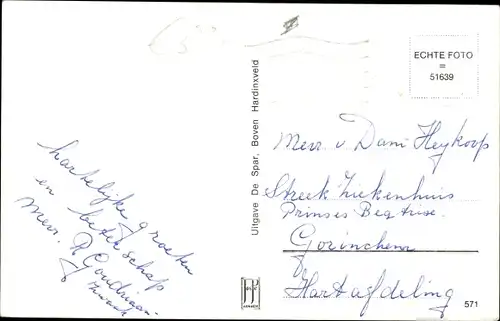 ECHTE FOTO
=
51639
hartelijke groeten
en beterschap
Mevr. R Goudriaan
Uitgave De Spar, Boven Hardinxveld
Mevr. v Dam Heykoop
Streek Ziekenhuis
Prinses Beatrixe.
Gorinchem
Hartafdeling
571